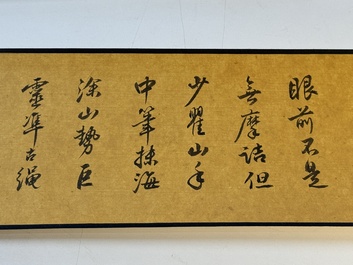 眼前不是
無摩詰但
少瞿山手
中筆抹海
涂山勢巨
靈準古繩